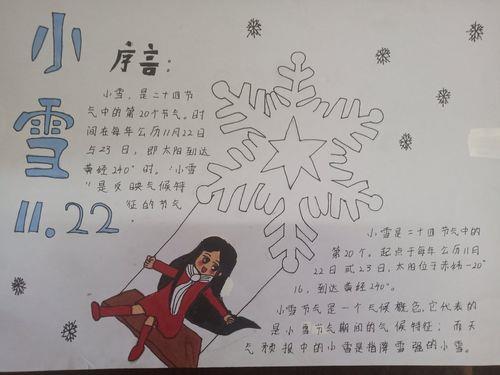 小雪
11.22
序言：
小雪，是二十四节
气中的第20个节气。时
间在每年公历11月22日
与23日，即太阳到达
黄经240°时。“小雪
”是反映气候特
征的节气
小雪是二十四节气中的
第20个。起点于每年公历11月
22日或23日，太阳位于赤纬-20°
16，到达黄经240°。
小雪节气是一个气候概念，它代表的
是小雪节气期间的气候特征；而天
气预报中的小雪是指降雪强的小雪。